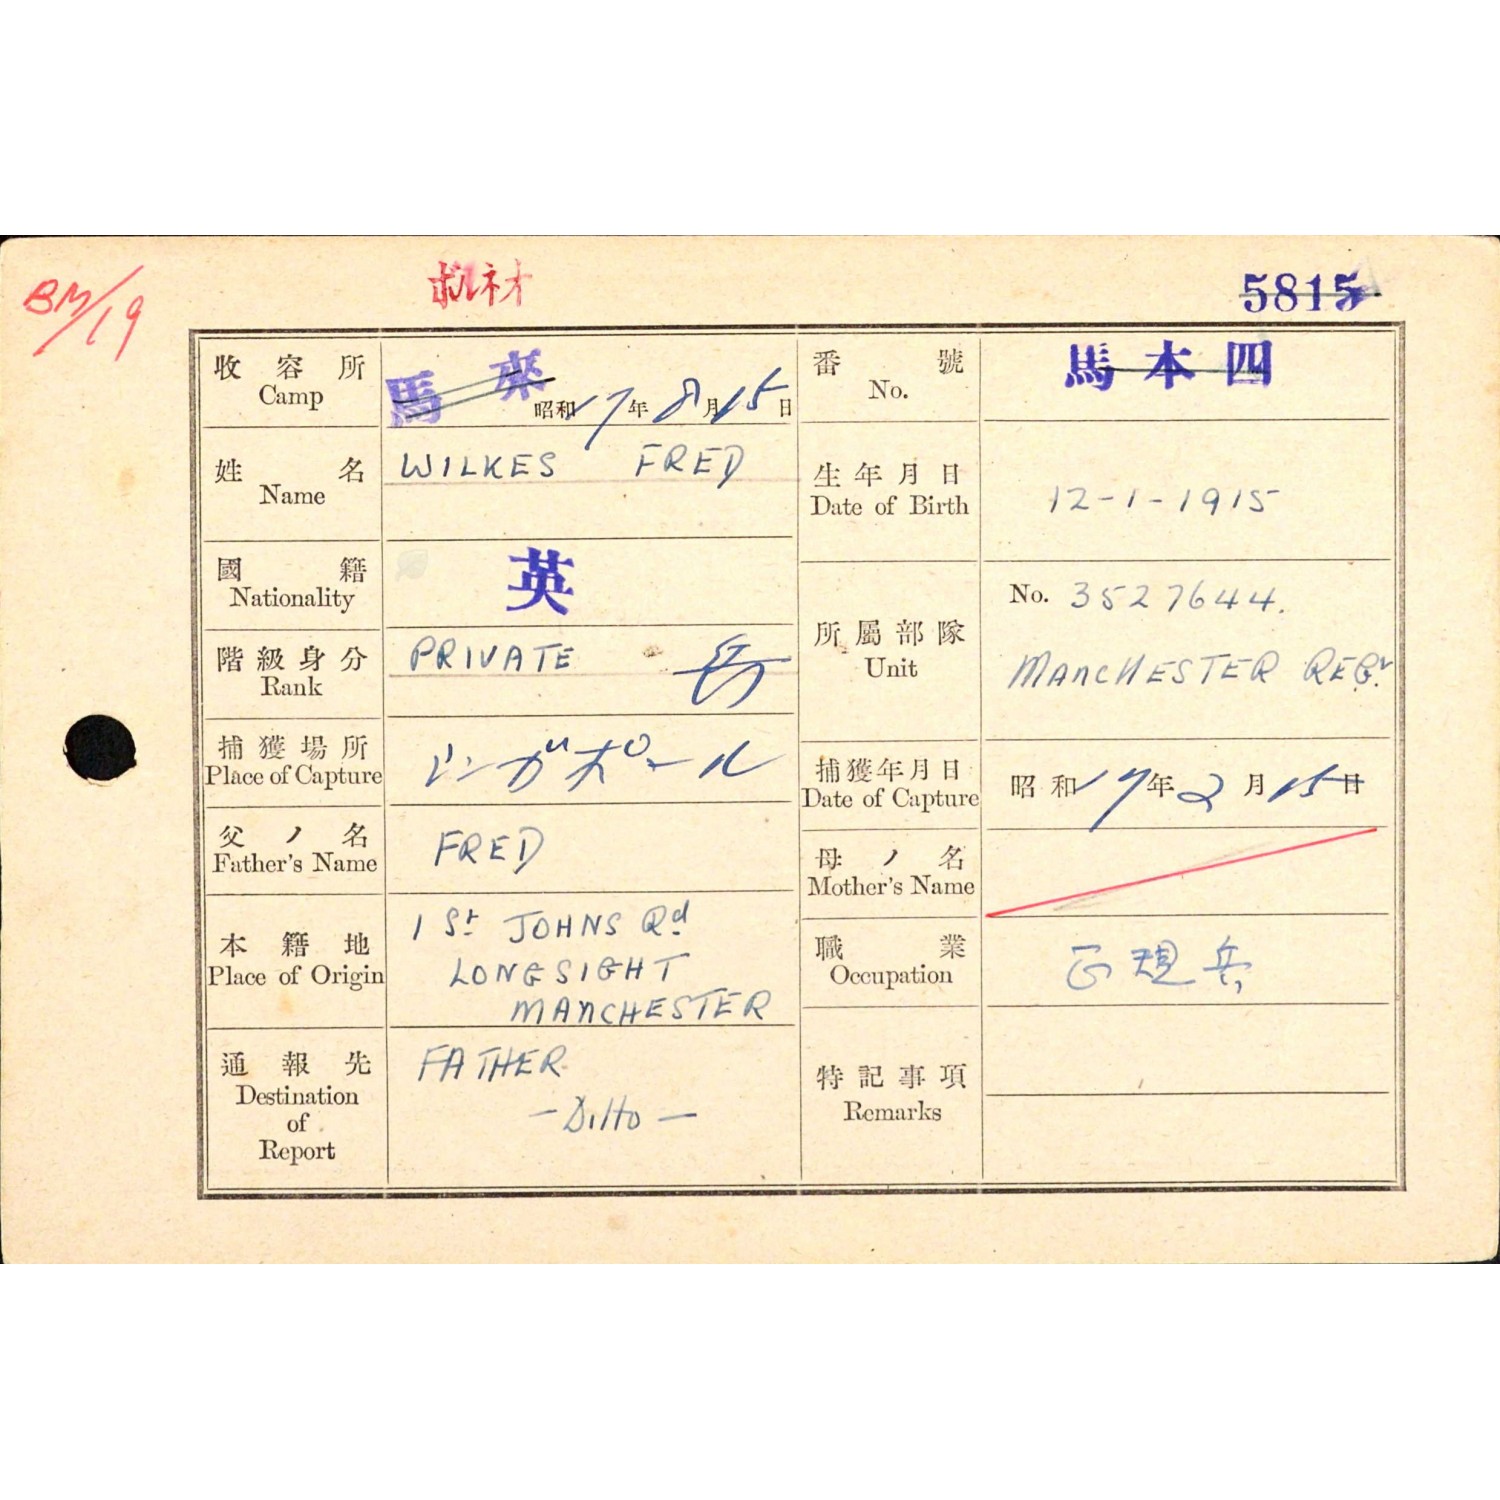 BM/19
ボルネオ
5815
收容所
Camp
馬來
昭和17年8月15日
番號
No.
馬本四
姓名
Name
WILKES FRED
生年月日
Date of Birth
12-1-1915
國籍
Nationality
英
階級身分
Rank
PRIVATE 兵
所屬部隊
Unit
No. 3527644.
MANCHESTER REGT.
捕獲場所
Place of Capture
シンガポール
捕獲年月日
Date of Capture
昭和17年2月15日
父ノ名
Father's Name
FRED
母ノ名
Mother's Name
本籍地
Place of Origin
1 St JOHNS Rd
LONGSIGHT
MANCHESTER
職業
Occupation
正規兵
通報先
Destination
of
Report
FATHER
- Ditto -
特記事項
Remarks